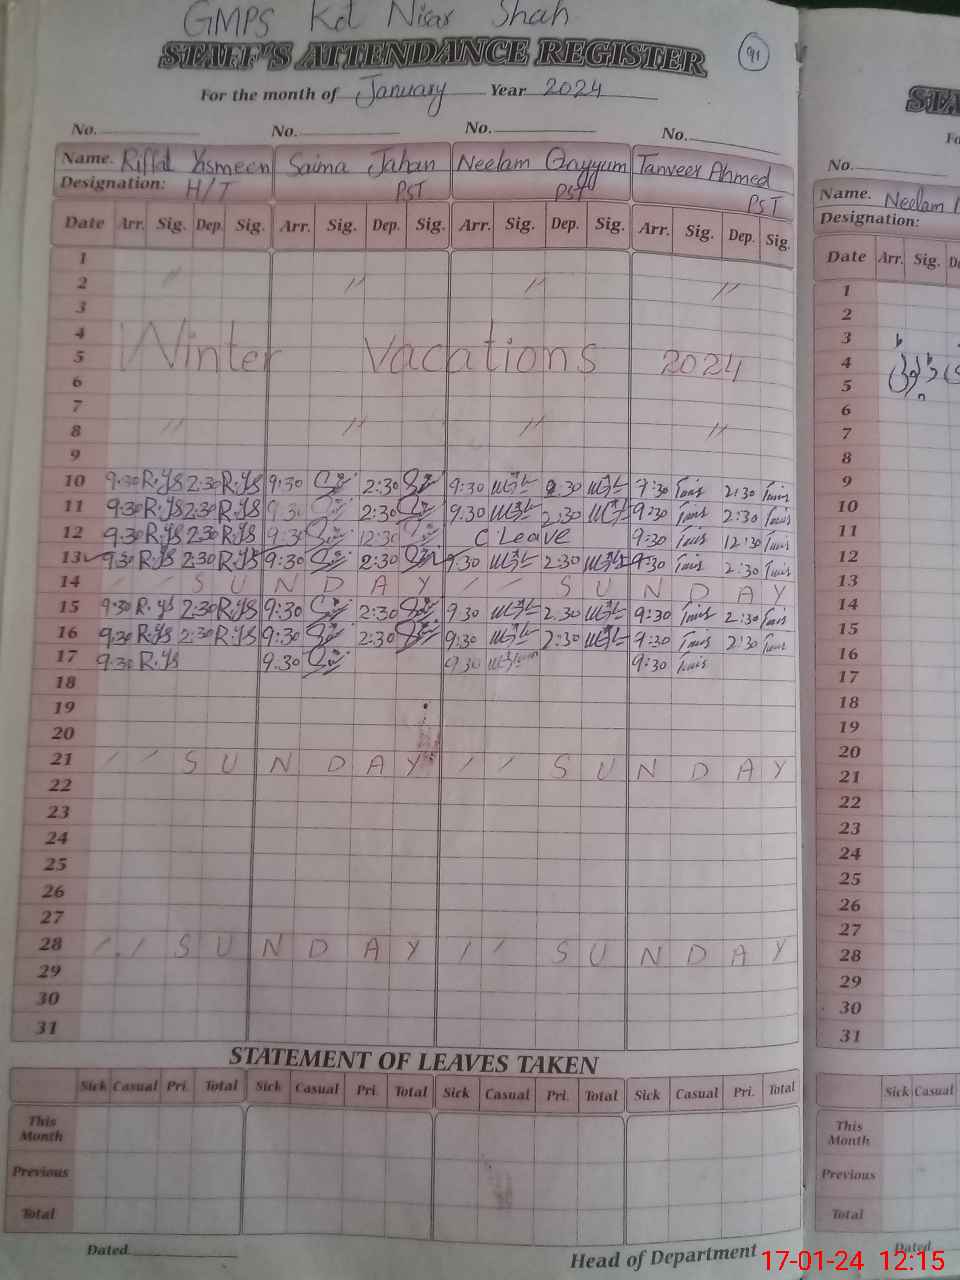 GMPS Kot Nisar Shah
STAFF'S ATTENDANCE REGISTER
91
For the month of January Year 2024
No. No. No. No.
Name. Riffat Yasmeen Saima Jahan Neelam Qayyum Tanveer Ahmed
Designation: H/T PST PST PST
Date Arr. Sig. Dep. Sig. Arr. Sig. Dep. Sig. Arr. Sig. Dep. Sig. Arr. Sig. Dep. Sig.
1
2 " " " "
3
4
5 Winter Vacations 2024
6
7
8 " " " "
9
10 9.30 R.Ys 2:30 R.Ys 9:30 2:30 9:30 2:30 9:30 2:30
11 9:30 R.Ys 2:30 R.Ys 9:30 2:30 9:30 2:30 9:30 2:30
12 9:30 R.Ys 2:30 R.Ys 9:30 12:30 C Leave 9:30 12:30
13 9:30 R.Ys 2:30 R.Ys 9:30 2:30 9:30 2:30 9:30 2:30
14 / / S U N D A Y / / S U N D A Y
15 9.30 R.Ys 2:30 R.Ys 9:30 2:30 9.30 2.30 9:30 2:30
16 9.30 R.Ys 2:30 R.Ys 9:30 2:30 9:30 2:30 9:30 2:30
17 9.30 R.Ys 9.30 9.30 9:30
18
19
20
21 / / S U N D A Y / / S U N D A Y
22
23
24
25
26
27
28 / / S U N D A Y / / S U N D A Y
29
30
31
STATEMENT OF LEAVES TAKEN
Sick Casual Pri. Total Sick Casual Pri. Total Sick Casual Pri. Total Sick Casual Pri. Total
This Month
Previous
Total
Dated
Head of Department
STA
Fo
No.
Name. Neelam
Designation:
Date Arr. Sig. De
1
2
3
4
5
6
7
8
9
10
11
12
13
14
15
16
17
18
19
20
21
22
23
24
25
26
27
28
29
30
31
Sick Casual
This Month
Previous
Total
Dated
17-01-24 12:15